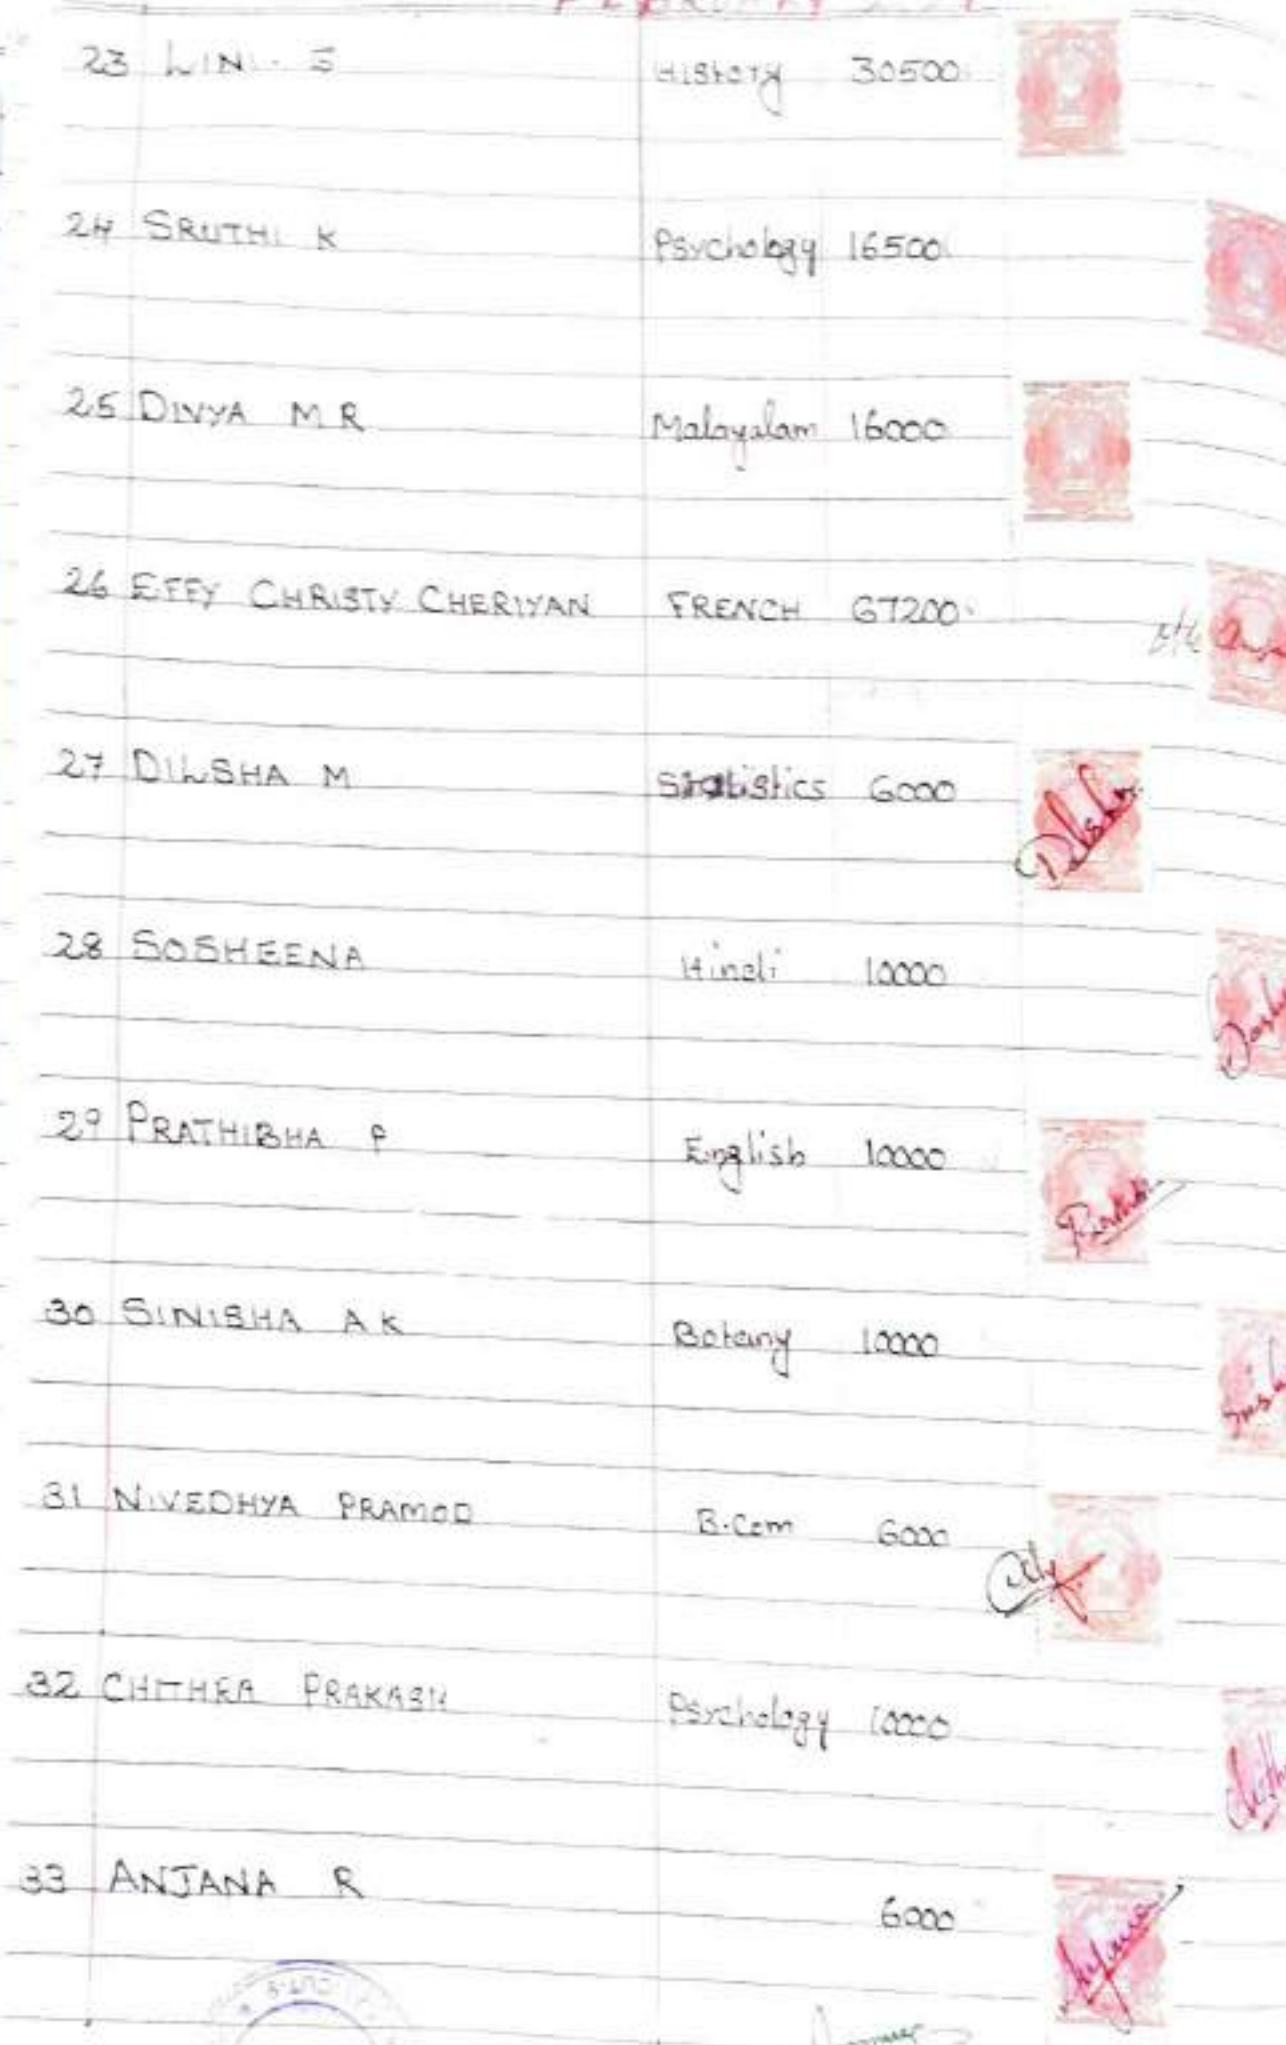 23 LINI. S History 30500
24 SRUTHI K Psychology 16500
25 DIVYA M R Malayalam 16000
26 EFFY CHRISTY CHERIYAN FRENCH 67200
27 DILSHA M Statistics 6000
Dilsha
28 SOSHEENA Hindi 10000
29 PRATHIBHA P English 10000
30 SINISHA A K Botany 10000
31 NIVEDHYA PRAMOD B.Com 6000
32 CHITHRA PRAKASH Psychology 10000
33 ANJANA R 6000